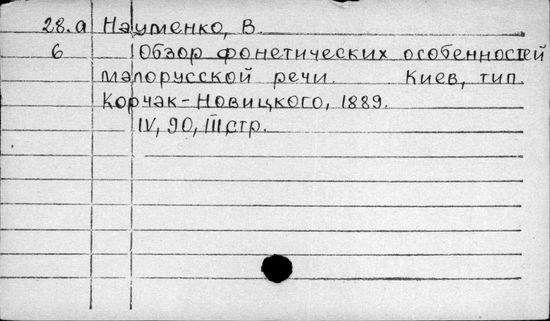 28.а Науменко, В.
6 Обзор фонетических особенностей
малорусской речи. Киев, тип.
Корчак-Новицкого, 1889.
IV, 90, III стр.